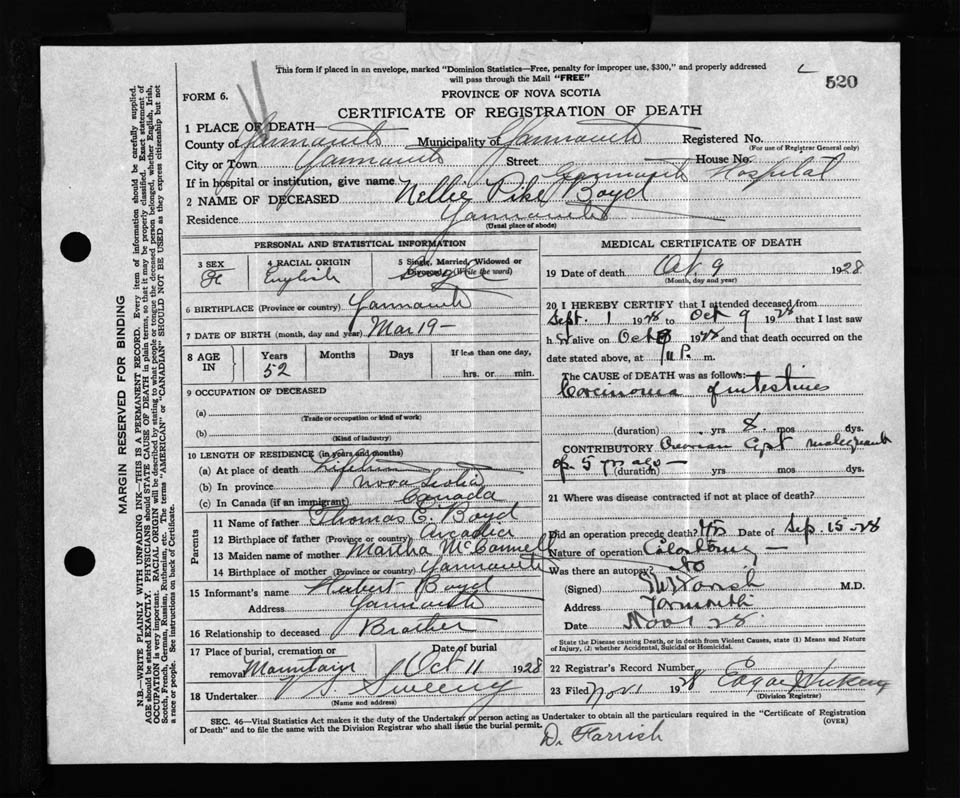 This form if placed in an envelope, marked "Dominion Statistics—Free, penalty for improper use, $300," and properly addressed
will pass through the Mail "FREE"
520
FORM 6.
PROVINCE OF NOVA SCOTIA
CERTIFICATE OF REGISTRATION OF DEATH
1 PLACE OF DEATH—
County of Yarmouth Municipality of Yarmouth Registered No.
(For use of Registrar General only)
City or Town Yarmouth Street House No.
If in hospital or institution, give name Yarmouth Hospital
2 NAME OF DECEASED Nellie Pike Boyd
Residence Yarmouth
(Usual place of abode)
PERSONAL AND STATISTICAL INFORMATION
3 SEX 4 RACIAL ORIGIN 5 Single, Married, Widowed or
Divorced (Write the word)
F English Single
6 BIRTHPLACE (Province or country) Yarmouth
7 DATE OF BIRTH (month, day and year) Mar 19 —
8 AGE IN Years Months Days If less than one day,
52 hrs. or min.
9 OCCUPATION OF DECEASED
(a)
(Trade or occupation or kind of work)
(b)
(Kind of industry)
10 LENGTH OF RESIDENCE (in years and months)
(a) At place of death Lifetime
(b) In province Nova Scotia
(c) In Canada (if an immigrant) Canada
Parents
11 Name of father Thomas E. Boyd
12 Birthplace of father (Province or country) Arcadia
13 Maiden name of mother Martha McConnell
14 Birthplace of mother (Province or country) Yarmouth
15 Informant's name Hubert Boyd
Address Yarmouth
16 Relationship to deceased Brother
17 Place of burial, cremation or Date of burial
removal Mountain Oct 11 1928
18 Undertaker V S Sweeny
(Name and address)
MEDICAL CERTIFICATE OF DEATH
19 Date of death Oct. 9 1928
(Month, day and year)
20 I HEREBY CERTIFY that I attended deceased from
Sept. 1 1928 to Oct 9 1928 that I last saw
h alive on Oct 8 1928 and that death occurred on the
date stated above, at 11 P. m.
The CAUSE of DEATH was as follows:
Carcinoma of intestines
(duration) yrs 8 mos dys.
CONTRIBUTORY Ovarian Cyst malignant
op. 5 ago —
(duration) yrs mos dys.
21 Where was disease contracted if not at place of death?
Did an operation precede death? Yes Date of Sep. 15-28
Nature of operation Colostomy —
Was there an autopsy? No
(Signed) M.D.
Address Yarmouth
Date Nov 1 28.
State the Disease causing Death, or in death from Violent Causes, state (1) Means and Nature
of Injury, (2) whether Accidental, Suicidal or Homicidal.
22 Registrar's Record Number
23 Filed Nov 1 1928 Edgar
(Division Registrar)
SEC. 46—Vital Statistics Act makes it the duty of the Undertaker or person acting as Undertaker to obtain all the particulars required in the "Certificate of Registration
of Death" and to file the same with the Division Registrar who shall issue the burial permit.
(OVER)
MARGIN RESERVED FOR BINDING
N.B.—WRITE PLAINLY WITH UNFADING INK—THIS IS A PERMANENT RECORD. Every item of information should be carefully supplied.
AGE should be stated EXACTLY. PHYSICIANS should STATE CAUSE OF DEATH in plain terms, so that it may be properly classified. Exact statement of
OCCUPATION is very important. RACIAL ORIGIN will be described by stating to what people or tongue the deceased person belonged, whether English, Irish,
Scotch, French, German, Russian, Ruthenian, etc. The terms "AMERICAN" or "CANADIAN" SHOULD NOT BE USED as they express citizenship but not
a race or people. See instructions on back of Certificate.